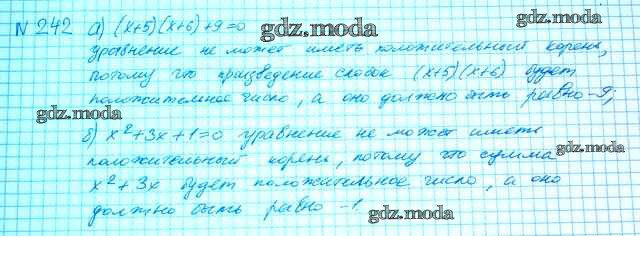 N 242 а) (x+5)(x+6)+9=0
gdz.moda
уравнение не может иметь положительный корень,
потому что произведение скобок (x+5)(x+6) будет
положительное число, а оно должно быть равно -9;
gdz.moda
б) x²+3x+1=0 уравнение не может иметь
положительный корень, потому что сумма
gdz.moda
x²+3x будет положительное число, а оно
должно быть равно -1
gdz.moda